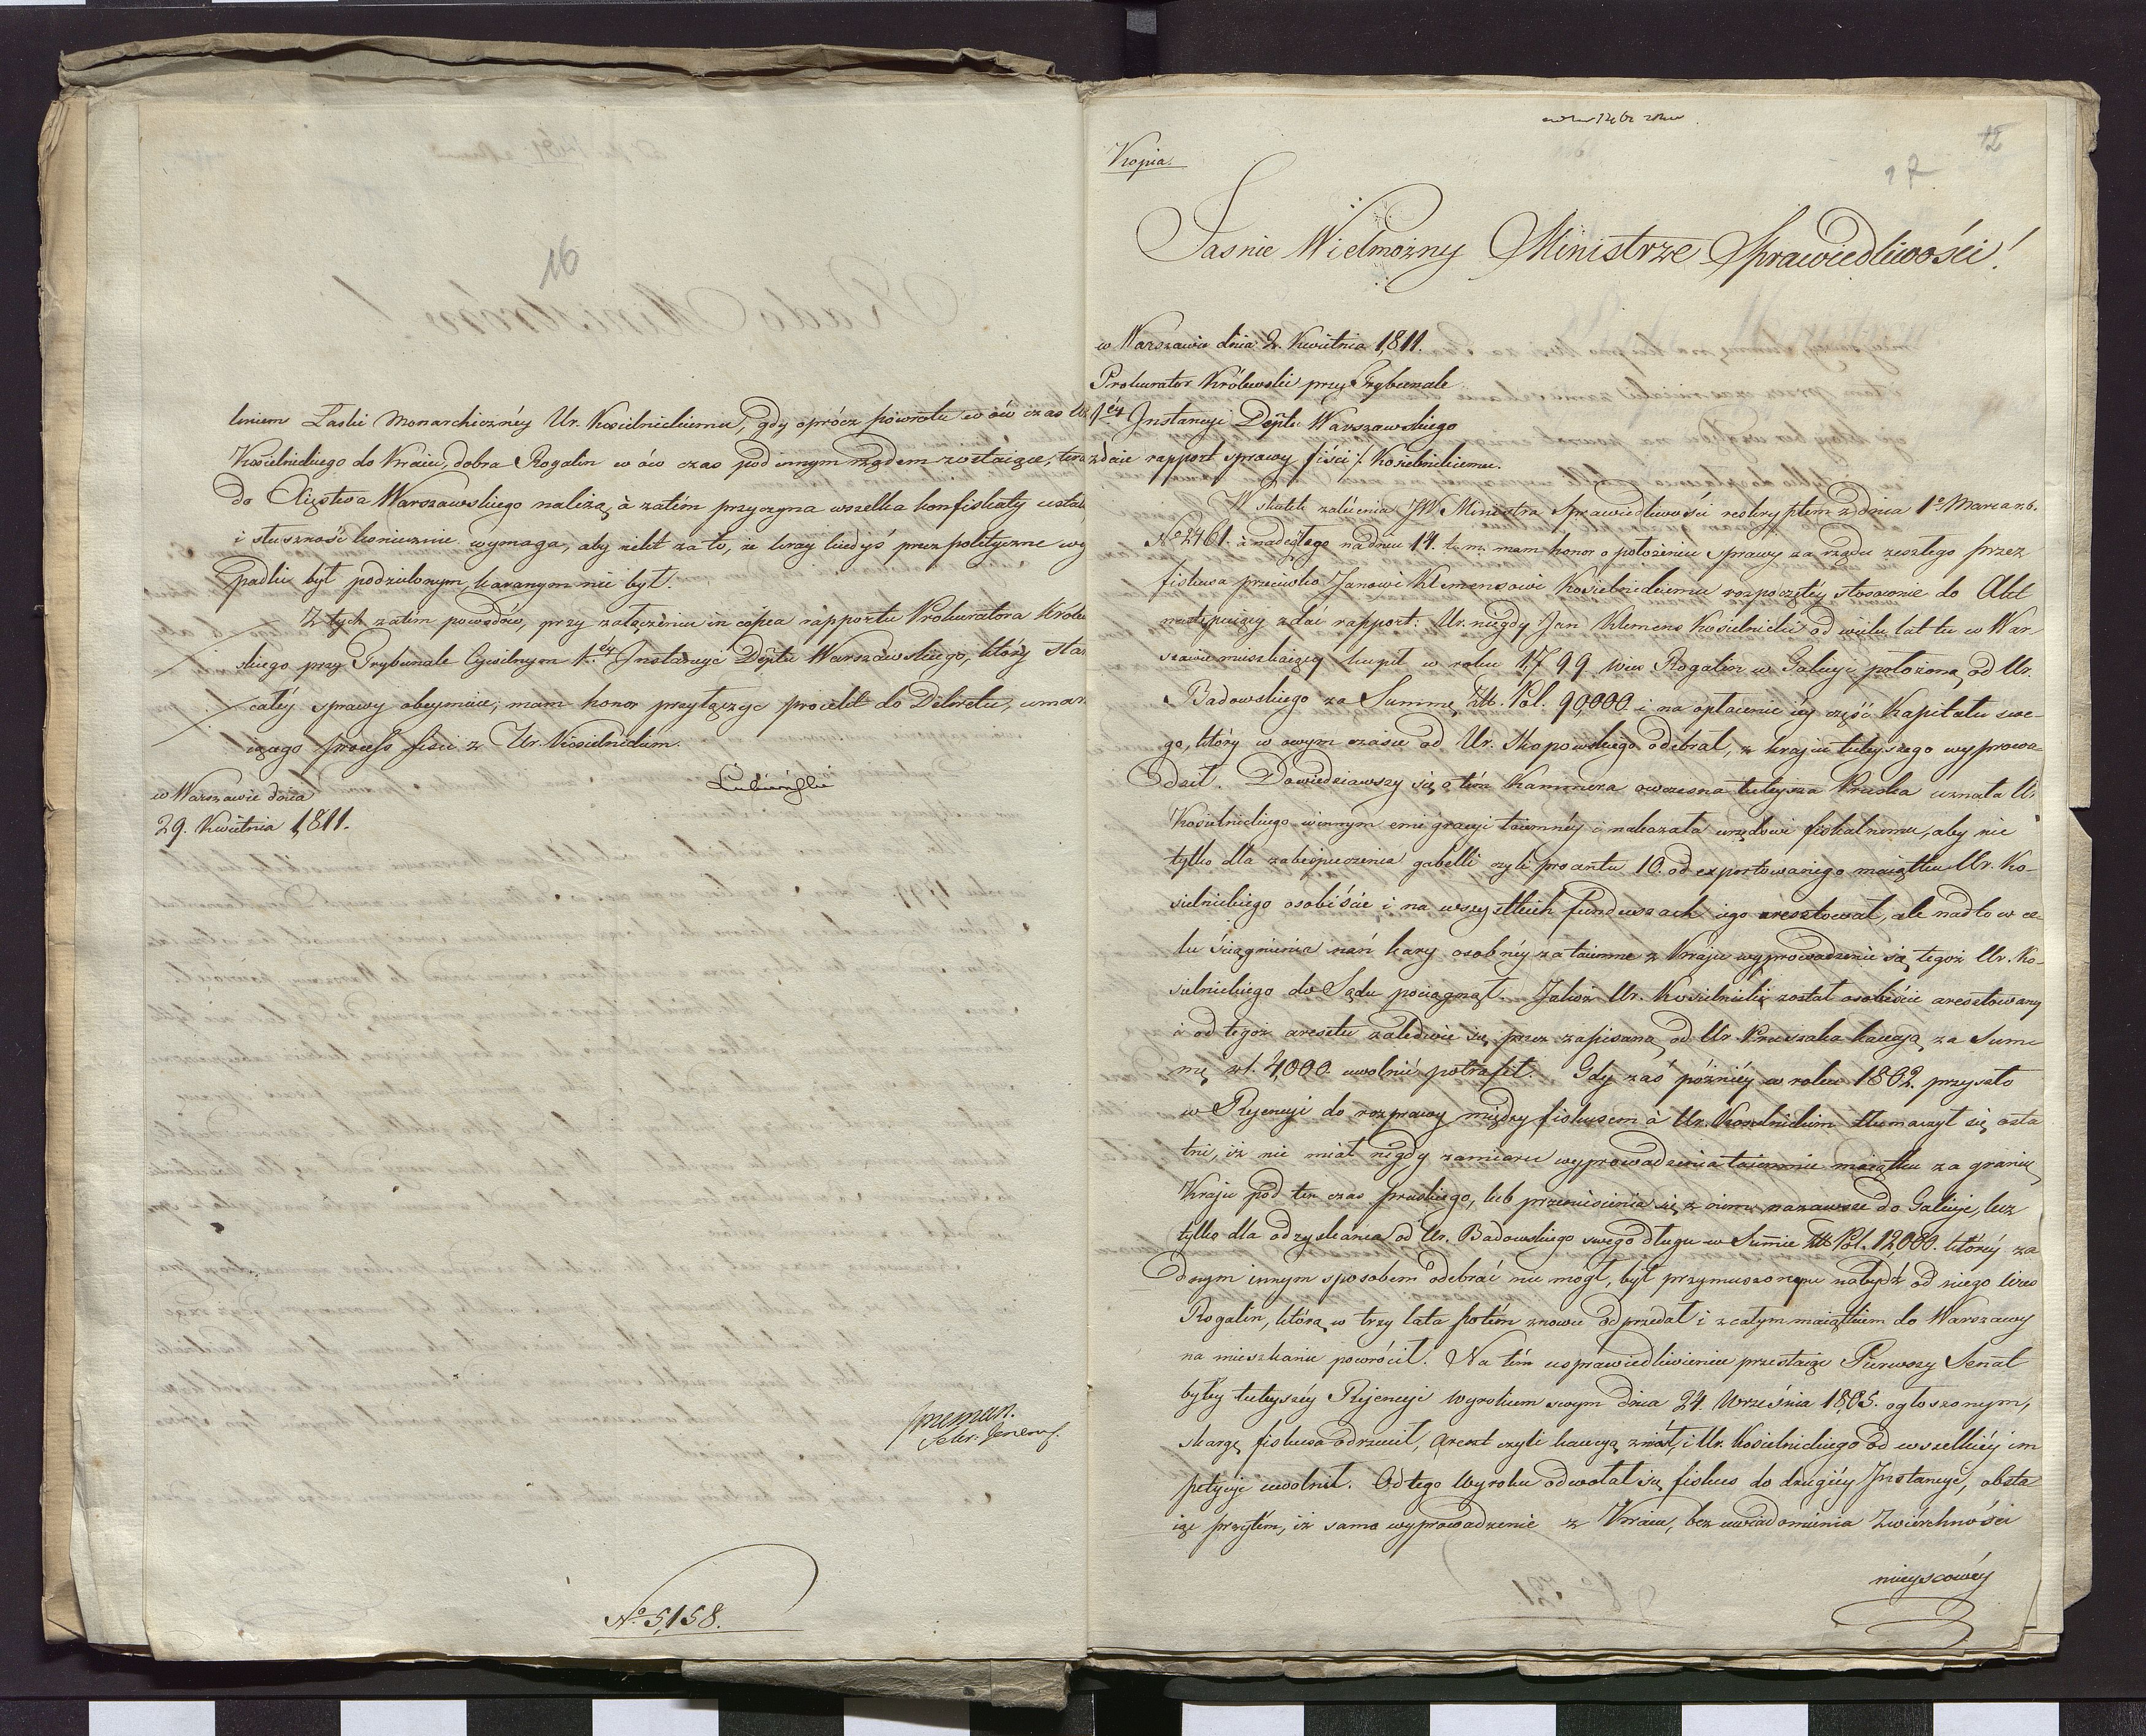 16
leniem Łaski Monarchicznéy Ur. Kosielnickiemu, gdy oprócz powrotu w ów czas Ur.
Kosielnickiego do Kraiu, dobra Rogalin w ów czas pod innym rządem zostaiące, teraz
do Xięstwa Warszawskiego należą, à zatém przyczyna wszelka konfiskaty ustała,
i słuszność koniecznie wymaga, aby nikt za to, że kray kiedyś przez polityczne wy
padki był podzielonym, karanym nie był.
Z tych zatém powodów, przy załączeniu in copia rapportu Prokuratora Królew
skiego przy Trybunale Cywilnym 1éy Instancyi Deptu Warszawskiego, który stan
całéy sprawy obeymuie; mam honor przyłączyć proiekt do Dekretu, umarz
aiącego process fisci z Ur. Kosielnickim.
Łubieński
w Warszawie dnia
29. Kwietnia 1811.
Sekr. Jeneral.
No 5,158.
12
17
Kopia.
Jasnie Wielmożny Ministrze Sprawiedliwości!
w Warszawie dnia 2. Kwietnia 1811.
Prokurator Królewski przy Trybunale
1éy Instancyi Deptu Warszawskiego
zdaie rapport sprawy fisci /: Kosielnickiemu.
W skutek zalécenia JW. Ministra Sprawiedliwości reskryptem z dnia 1o Marca r. b.
No 2461. à nadeszłego na dniu 14. t. m. mam honor o położeniu sprawy za rządu zeszłego przez
fiskusa przeciwko Janowi Klemensowi Kosielnickiemu rozpoczętéy stosownie do Akt
nastepuiący zdać rapport: Ur. niegdy Jan Klemens Kosielnicki od wielu lat tu w War
szawie mieszkaiący kupił w roku 1799 wieś Rogalin w Galicyi położoną od Ur.
Badowskiego za Summę Złł. Pol. 90,000 i na opłacenie iéy część Kapitału swe-
go, który w owym czasie od Ur. Skopowskiego odebrał, z kraju tuteyszego wyprowa-
dził. Dowiedziawszy się o tém Kammera owczesna tuteysza Pruska uznała Ur.
Kosielnickiego winnym emigracyi taiemnéy i nakazała urzędowi fiskalnemu, aby nie
tylko dla zabezpieczenia gabelli czyli procentu 10. od exportowanego maiątku Ur. Ko-
sielnickiego osobiście i na wszystkich funduszach iego aresztował, ale nadto w ce-
lu ściągnienia nań kary osobnéy za taiemne z Kraju wyprowadzenie się tegoż Ur. Ko-
sielnickiego do Sądu pociągnął. Jakoż Ur. Kosielnicki został osobiście aresztowany
i od tegoż aresztu zaledwie się przez zapisaną od Ur. Pruszaka kaucyą za Sum
mę zł. 4,000 uwolnić potrafił. Gdy zaś poźniéy w roku 1802. przyszło
w Rejencyi do rozprawy między fiskusem à Ur. Kosielnickim tłumaczył się osta
tni, iż nie miał nigdy zamiaru wyprowadzenia taiemnie maiątku za granicę
Kraju pod ten czas pruskiego, lub przeniesienia się z onim nazawsze do Galicyi, lecz
tylko dla odzyskania od Ur. Badowskiego swego długu w Summie Złł. Pol. 12,000. któréy ża
dnym innym sposobem odebrać nie mógł, był przymuszonym nabydź od niego wieś
Rogalin, którą w trzy lata potém znowu odprzedał i z całym maiątkiem do Warszawy
na mieszkanie powrócił. Na tém usprawiedliwieniu przestaiąc Pierwszy Senat
byłéy tuteyszéy Rejencyi wyrokiem swym dnia 24 Września 1805. ogłoszonym,
skargę fiskusa odrzucił, areszt czyli kaucyą zniósł, i Ur. Kosielnickiego od wszelkiéy im
petycyi uwolnił. Od tego wyroku odwołał się fiskus do drugiéy Instancyi, obsta
iąc przytém, iż samo wyprowadzenie z Kraiu, bez uwiadomienia Zwierzchności
mieyscowéy